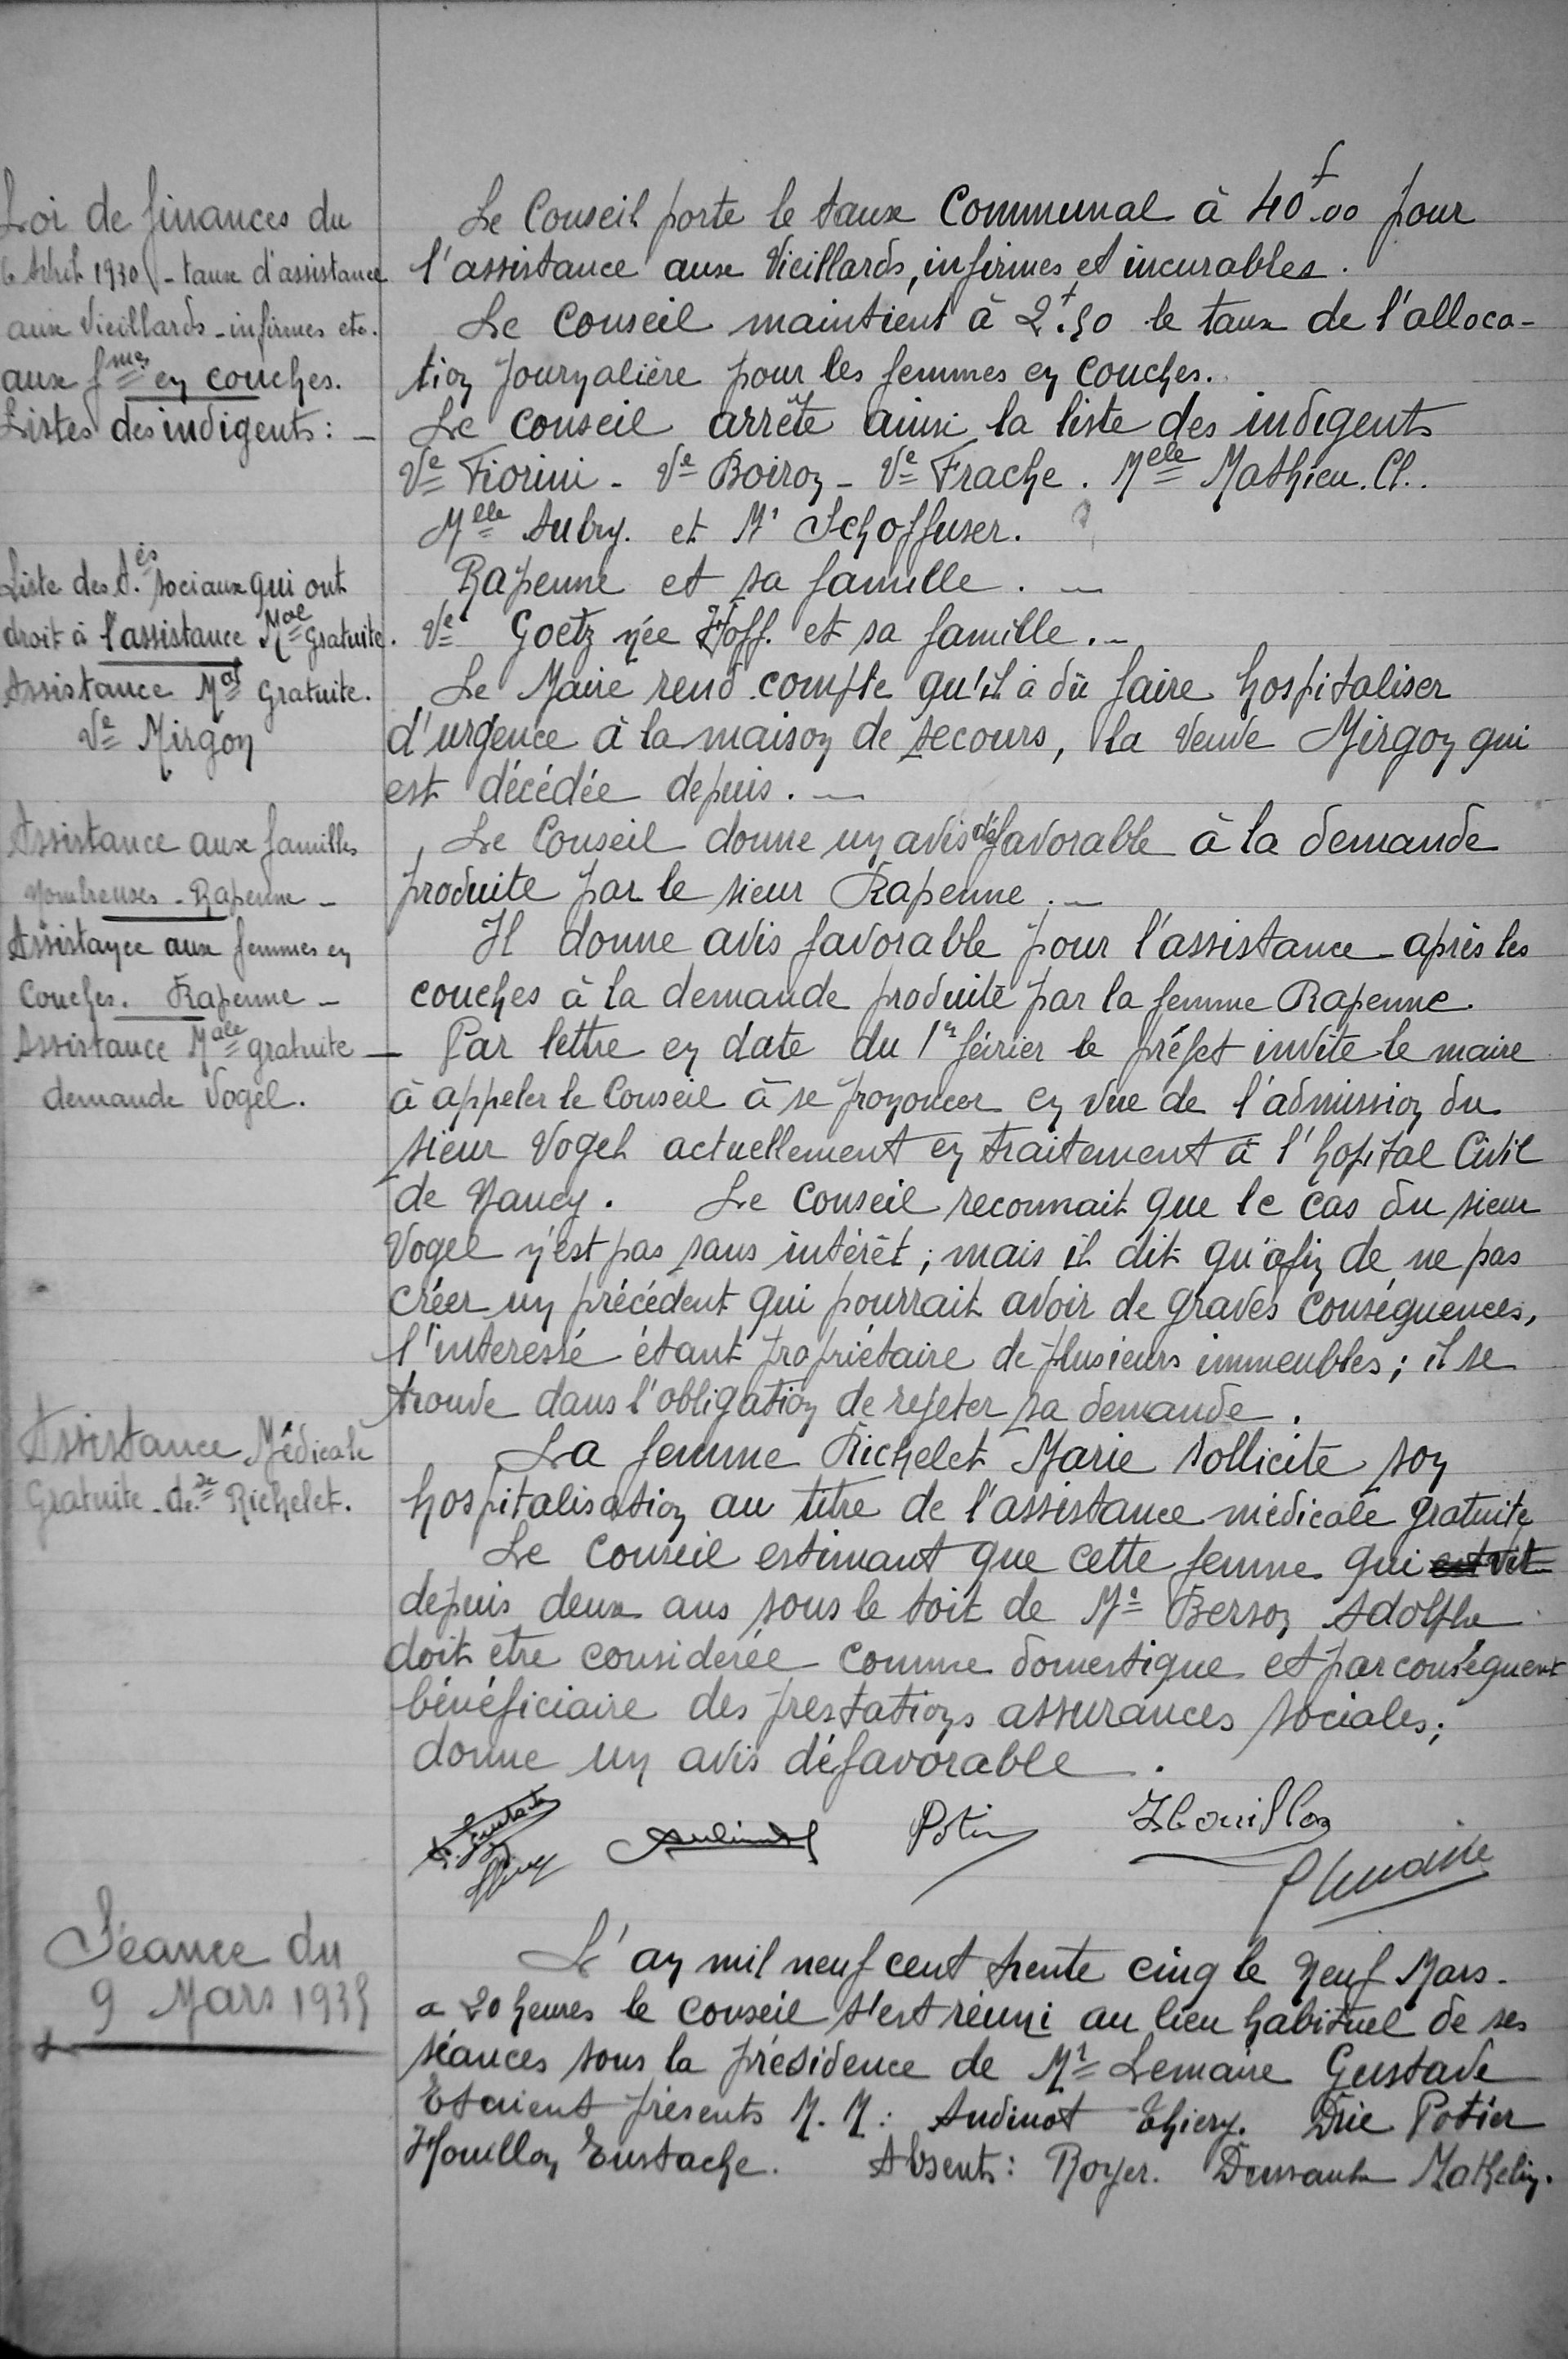 Loi de finances du
6 Avril 1930 - taux d'assistance
aux Vieillards - infirmes etc.
aux fmes en couches.
Listes des indigents : -
Le Conseil porte le taux Communal à 40f.00 pour
l'assistance aux Vieillards, infirmes et incurables.
Le Conseil maintient à 2f.50 le taux de l'alloca-
tion journalière pour les femmes en couches.
Le Conseil arrête ainsi la liste des indigents
Ve Fiorini - Ve Boiron - Ve Frache. Melle Mathieu. Cl..
Mlle Aubry. et Mr Schoffuser.
Liste des A.és sociaux qui ont
droit à l'assistance Male Gratuite.
Rapenne et sa famille. -
Ve Goetz née Hoff. et sa famille. -
Assistance Mal Gratuite.
Ve Mirgon
Le Maire rend compte qu'il a dû faire hospitaliser
d'urgence à la maison de secours, la veuve Mirgon qui
est décédée depuis. -
Assistance aux familles
nombreuses - Rapenne -
Le Conseil donne un avis défavorable à la demande
produite par le sieur Rapenne. -
Assistance aux femmes en
Couches. Rapenne -
Il donne avis favorable pour l'assistance - après les
couches à la demande produite par la femme Rapenne.
Assistance Male gratuite -
demande Vogel.
Par lettre en date du 1er février le préfet invite le maire
à appeler le Conseil à se prononcer en vue de l'admission du
sieur Vogel actuellement en traitement à l'hopital Civil
de Nancy. Le Conseil reconnait que le cas du sieur
Vogel n'est pas sans intérêt ; mais il dit qu'afin de ne pas
créer un précédent qui pourrait avoir de graves conséquences,
l'interessé étant propriétaire de plusieurs immeubles ; il se
trouve dans l'obligation de rejeter sa demande.
Assistance Médicale
Gratuite - de Richelet.
La femme Richelet Marie sollicite son
hospitalisation au titre de l'assistance médicale gratuite
Le Conseil estimant que cette femme qui est vit
depuis deux ans sous le toit de Mr Berson Adolphe
doit etre considerée comme domestique et par conséquent
bénéficiaire des prestations assurances sociales ;
donne un avis défavorable.
Eustache
Audinot Potier Houillon
Lemaire
Séance du
9 Mars 1935
L'an mil neuf cent trente cinq le neuf Mars.
a 20 heures le conseil s'est réuni au lieu habituel de ses
séances sous la présidence de Mr Lemaire Gustave
Etaient présents M. M : Audinot Thiery. Drie Potier
Houillon Eustache. Absents : Royer. Mathelin.